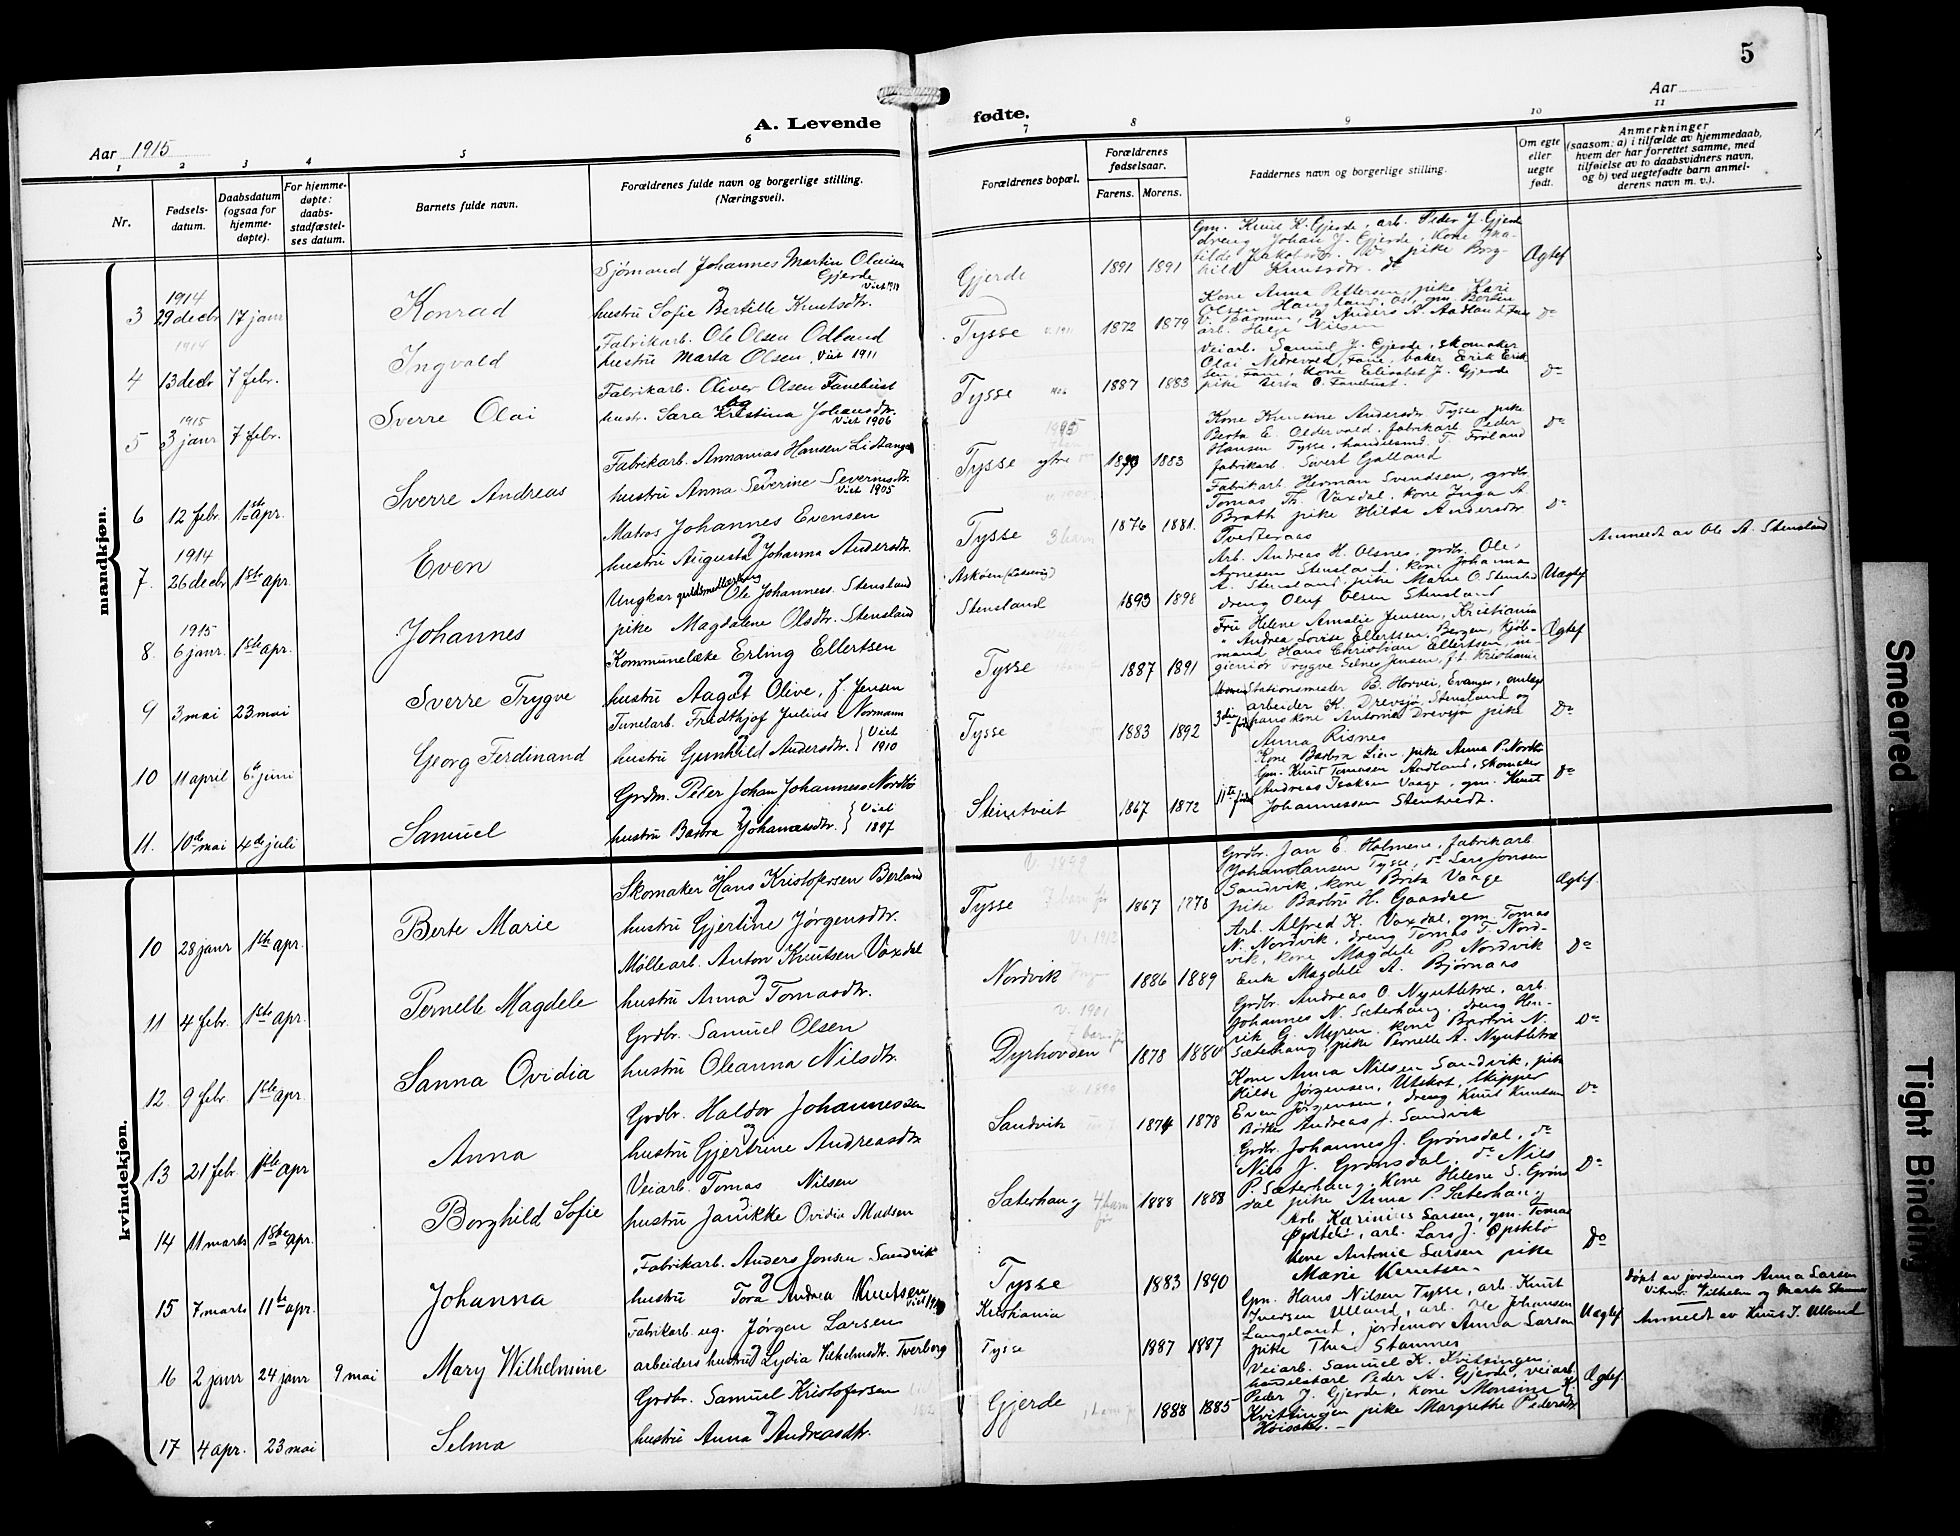 5
Aar 1915
A. Levende
fødte.
Aar
1 2 3 4 5 6 7 8 9 10 11
Nr.
Fødsels-
datum.
Daabsdatum
(ogsaa for
hjemme-
døpte).
For hjemme-
døpte:
daabs-
stadfæstel-
ses datum.
Barnets fulde navn.
Forældrenes fulde navn og borgerlige stilling.
(Næringsvei).
Forældrenes bopæl.
Forældrenes
fødselsaar.
Farens. Morens.
Faddernes navn og borgerlige stilling.
Om egte
eller
uegte
født.
Anmerkninger
(saasom: a) i tilfælde av hjemmedaab,
hvem der har forrettet samme, med
tilføielse av to daabsvidners navn,
og b) ved uegtefødte barn anmel-
derens navn m. v.).
mandkjøn.
3 1914 29 decbr 17 janr Konrad
Sjömand Johannes Martin Olaisen
Gjerde
hustru Sofie Bertille Knutsdtr.
Gjerde 1891 1891
Gm. Knut K. Gjerde, arb. Peder J. Gjerde
dreng Johan J. Gjerde, kone Ma-
tilde Jakobsdr. Do pike Borg-
hild Knutsdr. do
Ægtef
4 1914 13 decbr 7 febr. Ingvald
Fabrikarb. Ole Olsen Odland
hustru Marta Olsen, Viet 1911
Tysse 1872 1879
Kone Anna Pettersen, pike Kari
Olsen Haugland, Os, gm. Bertin
arb. Helge Nilsen
Do
5 1915 3 janr 7 febr. Sverre Olai
Fabrikarb. Oliver Olsen Fanebust
og
hust. Sara Kristina Johansdtr.
Viet 1906
Tysse 1887 1883
Veiarb. Samuel J. Gjerde, skomaker
Olai Nedrevold, Fane, baker Erik Erik
sen, Fane, kone Elisabet J. Gjerde
pike Berta O. Fanebust.
Do
6 12 febr 1ste apr. Sverre Andreas
Fabrikarb. Annanias Hansen Lidtanger
hustru Anna Severine Severinsdtr.
Viet 1905
Tysse ytre 1883
Andersdr Tysse pike
Berta E. Oldervold, fabrikarb. Peder
Hansen Tysse, handelsmd. T. Fröland
fabrikarb. Sivert Galland
Do
7. 1914 26 decbr 1ste apr. Even
Matros Johannes Evensen
hustru Augusta Johanna Andersdtr.
Tysse 3 barn
Askøen
1876 1881.
Fabrikarb. Herman Svendsen, grdbr.
Tomas Th. Vaxdal, kone Inga A.
Brath pike Hilda Andersdr
Tvedteraas
Do
8. 1915 6 janr. 1ste apr. Johannes
Ungkar guldsmedlærling Ole Johanness. Stensland
pike Magdalene Olsdtr. Stensland
Stensland 1893 1898
Arb. Andreas H. Olsnes, grdbr. Ole
Agnesen Stensland, kone Johanna
A. Stensland, pike Marie O. Stensland
dreng Oluf Olsen Stensland
Uægtef
Anmeldt av Ole A. Stensland
9 3 mai 23 mai Sverre Trygve
Kommunelæke Erling Ellertsen
hustru Aagot Olive, f. Jensen
Tysse 1887 1891
Fru Helene Amalie Jensen, Kristiania
" Andrea Lovise Ellertsen, Bergen, kjöb-
mand Hans Christian Ellertsen, in-
geniör Trygve Selnes Jensen, p.t. Kristiania
Ægtef
10 11 april 6te juni Georg Ferdinand
Tunelarb. Fredthjof Julius Normann
hustru Gunhild Andersdtr. } Viet 1910
Tysse 1883 1892
Stationsmester B. Horvei, Evanger, anlegs
arbeider K. Drevsjø, Stensland og
hans kone Antonie Drevsjø pike
Anna Risnes
Do
11. 10de mai 4de juli Samuel
Grdm. Peder Johan Johanness Nordbö
hustru Barbra Johannesdtr. } Viet 1897
Steintveit 1867 1872
Kone Barbra Lien, pike Anna P. Nordbö
Gm. Knut Tomasen Aadland, skomaker
Andreas Isaksen Vaage, gm. Knut
Johannessen Stentvedt.
Do
kvindekjøn.
10 28 janr 1ste apr. Berte Marie
Skomaker Hans Kristofersen Berland
hustru Gjertine Jørgensdtr.
Tysse 1867 1878
Grdbr. Jan E. Holmene, fabrikarb
Johan Hansen Tysse, do Lars Jonsen
Sandvik, kone Brita Vaage
pike Barbru H. Gaasdal
Ægtef.
11 4 febr. 1ste apr. Pernelle Magdele
Møllearb. Anton Knutsen Vaxdal
hustru Anna Tomasdtr.
Nordvik 1886 1889
Arb. Alfred K. Vaxdal, gm. Tomas
N. Nordvik, dreng Tomas T. Nord-
vik, kone Magdele P. Nordvik
Enke Magdele A. Björnaas
Do
12. 9 febr. 1ste apr. Sanna Ovidia
Grdbr. Samuel Olsen
hustru Oleanna Nilsdtr.
V. 1901
Dyrhovden 1878 1880
Grdbr. Andreas O. Nyutletræ, arb.
Johannes N. Sæterhaug, dreng Hen-
rik G. Myren, kone Barbru N.
Sæterhaug, pike Pernelle A. Nyutletræ
Do
13 21 febr 1ste apr Anna
Grdbr. Haldor Johannessen
hustru Gjertrine Andreasdtr
Sandvik 1874 1878
Kone Anna Nilsen Sandvik, pike
Hilda Jørgensen, Utskot, Skipper
Even Jörgensen, dreng Knut Knutsen
Bødtker Andreas J. Sandvik
Do
14 11 marts 1ste apr. Borghild Sofie
Veiarb. Tomas Nilsen
hustru Janikke Ovidia Madsen
Sæterhaug 4 barn før 1888 1888
Grdbr. Johannes J. Grönsdal, do
Nils J. Grönsdal, do Nils
P. Sæterhaug, kone Helene S. Gröns
dal pike Anna P. Sæterhaug
Do
15 7. marts 11te apr. Johanna
Fabrikarb. Anders Jonsen Sandvik
hustru Tora Andrea Knutsen
Tysse 1883 1890
Arb. Karinius Larsen, gm. Tomas
Øpstebö, arb. Lars J. Øpstebö
Kone Antonie Larsen pike
Marie Knutsen
Do
16 2 janr 24 janr 9 mai Mary Wilhelmine
Fabrikarb. ug. Jørgen Larsen
arbeiders hustru Lydia Vilhelmsdtr. Tverborg
Kristiania
Tysse 1887 1887
Gm. Hans Nilsen Tysse, arb. Knut
Iversen Ulland, arb. Ole Johansen
Langeland, jordemor Anna Larsen
pike Thea Stamnes
Uægtef.
Döpt av jordemor Anna Larsen
Vitner: Vilhelm og Marta Stamnes
Anmeldt av Knut I. Ulland
17 4 apr. 23 mai Selma
Grdbr. Samuel Kristofersen
hustru Anna Andreasdtr.
Gjerde 1888 1885
Veiarb. Samuel K. Kvittingen
handelskarl Peder A. Gjerde, veiarb.
Peder J. Gjerde, kone Monsine K.
Kvittingen pike Margrethe Pedersdtr
Höisæter.
Ægtef.
Smeared
Tight Binding